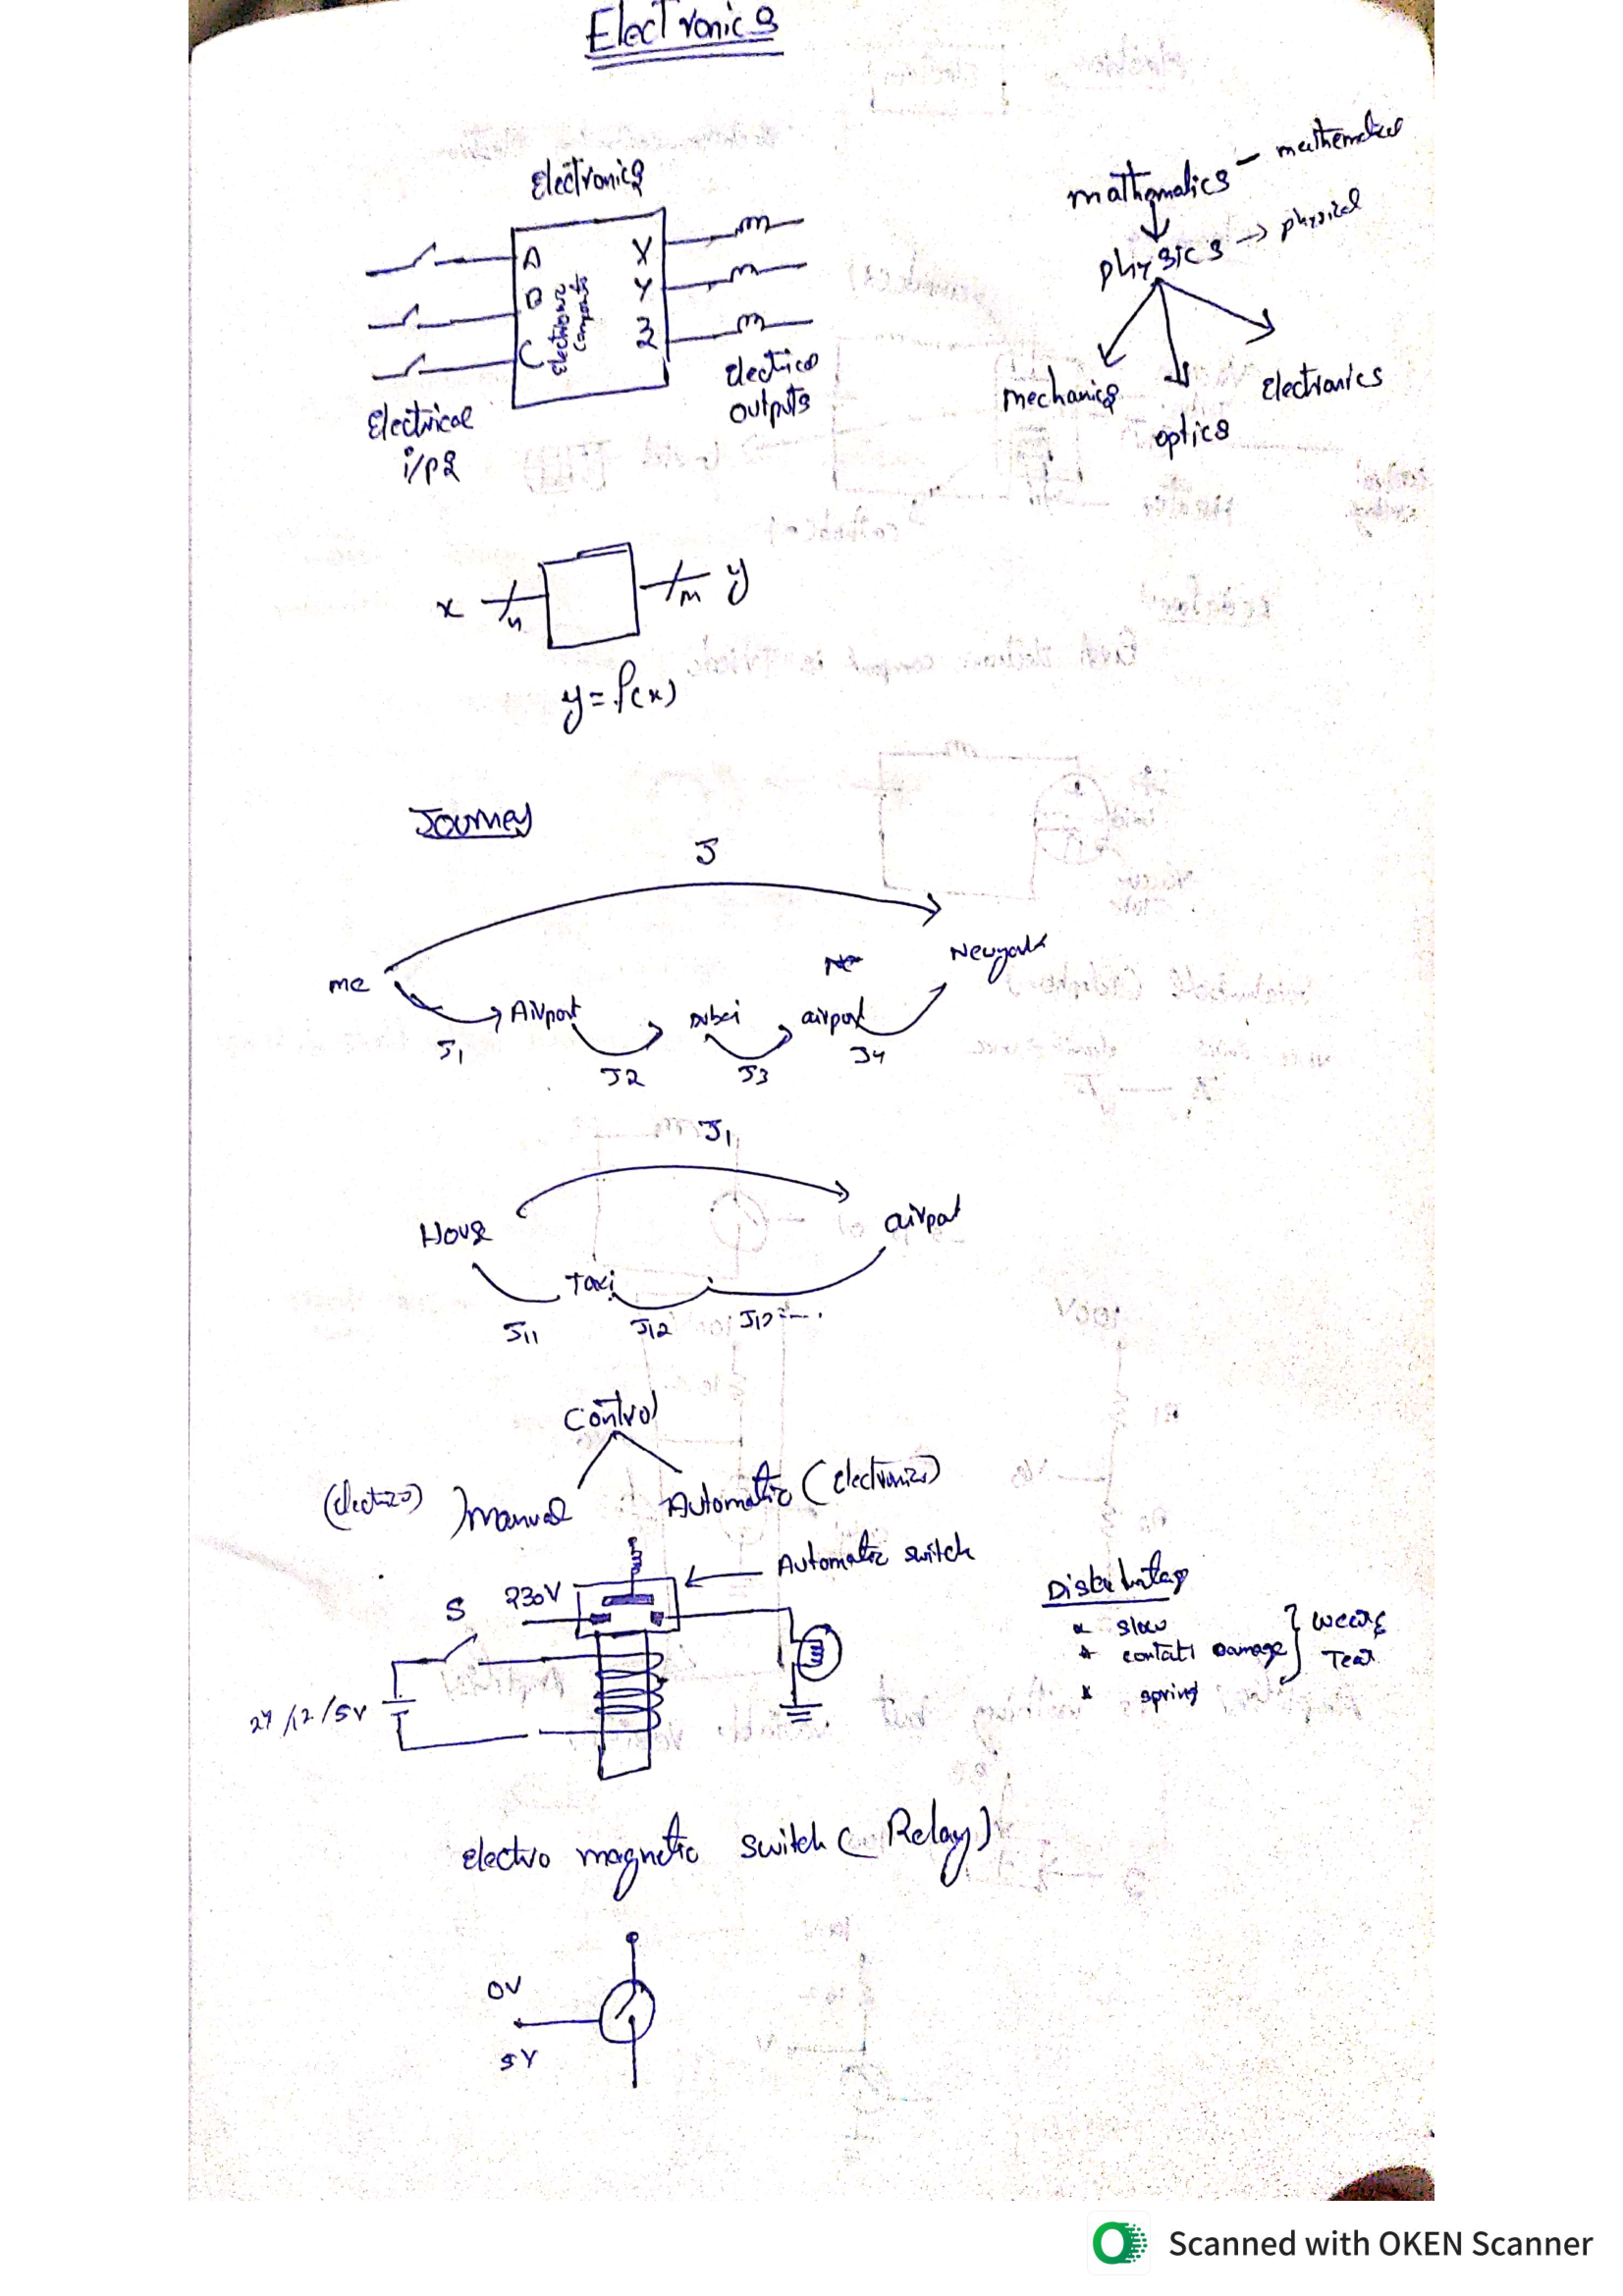 Electronics
Electronics
A
B
C
Electronic
Components
X
Y
Z
Electrical
i/ps
Electrical
outputs
mathematics - mathematical
physics → physical
mechanics
optics
Electronics
x
n
m
y
y = f(x)
Journey
J
me
Airport
Dubai
airport
Newyork
J1
J2
J3
J4
J1
House
Taxi
airport
J11
J12
Control
Manual
Automatic (Electronics)
S
230V
Automatic switch
24/12/5V
slow
Damage
spring
wear &
Tear
electro magnetic switch (Relay)
0V
5V
Scanned with OKEN Scanner